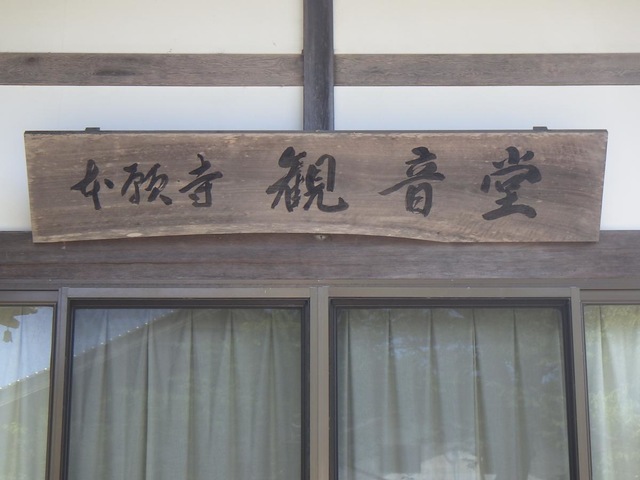 本願寺 観音堂